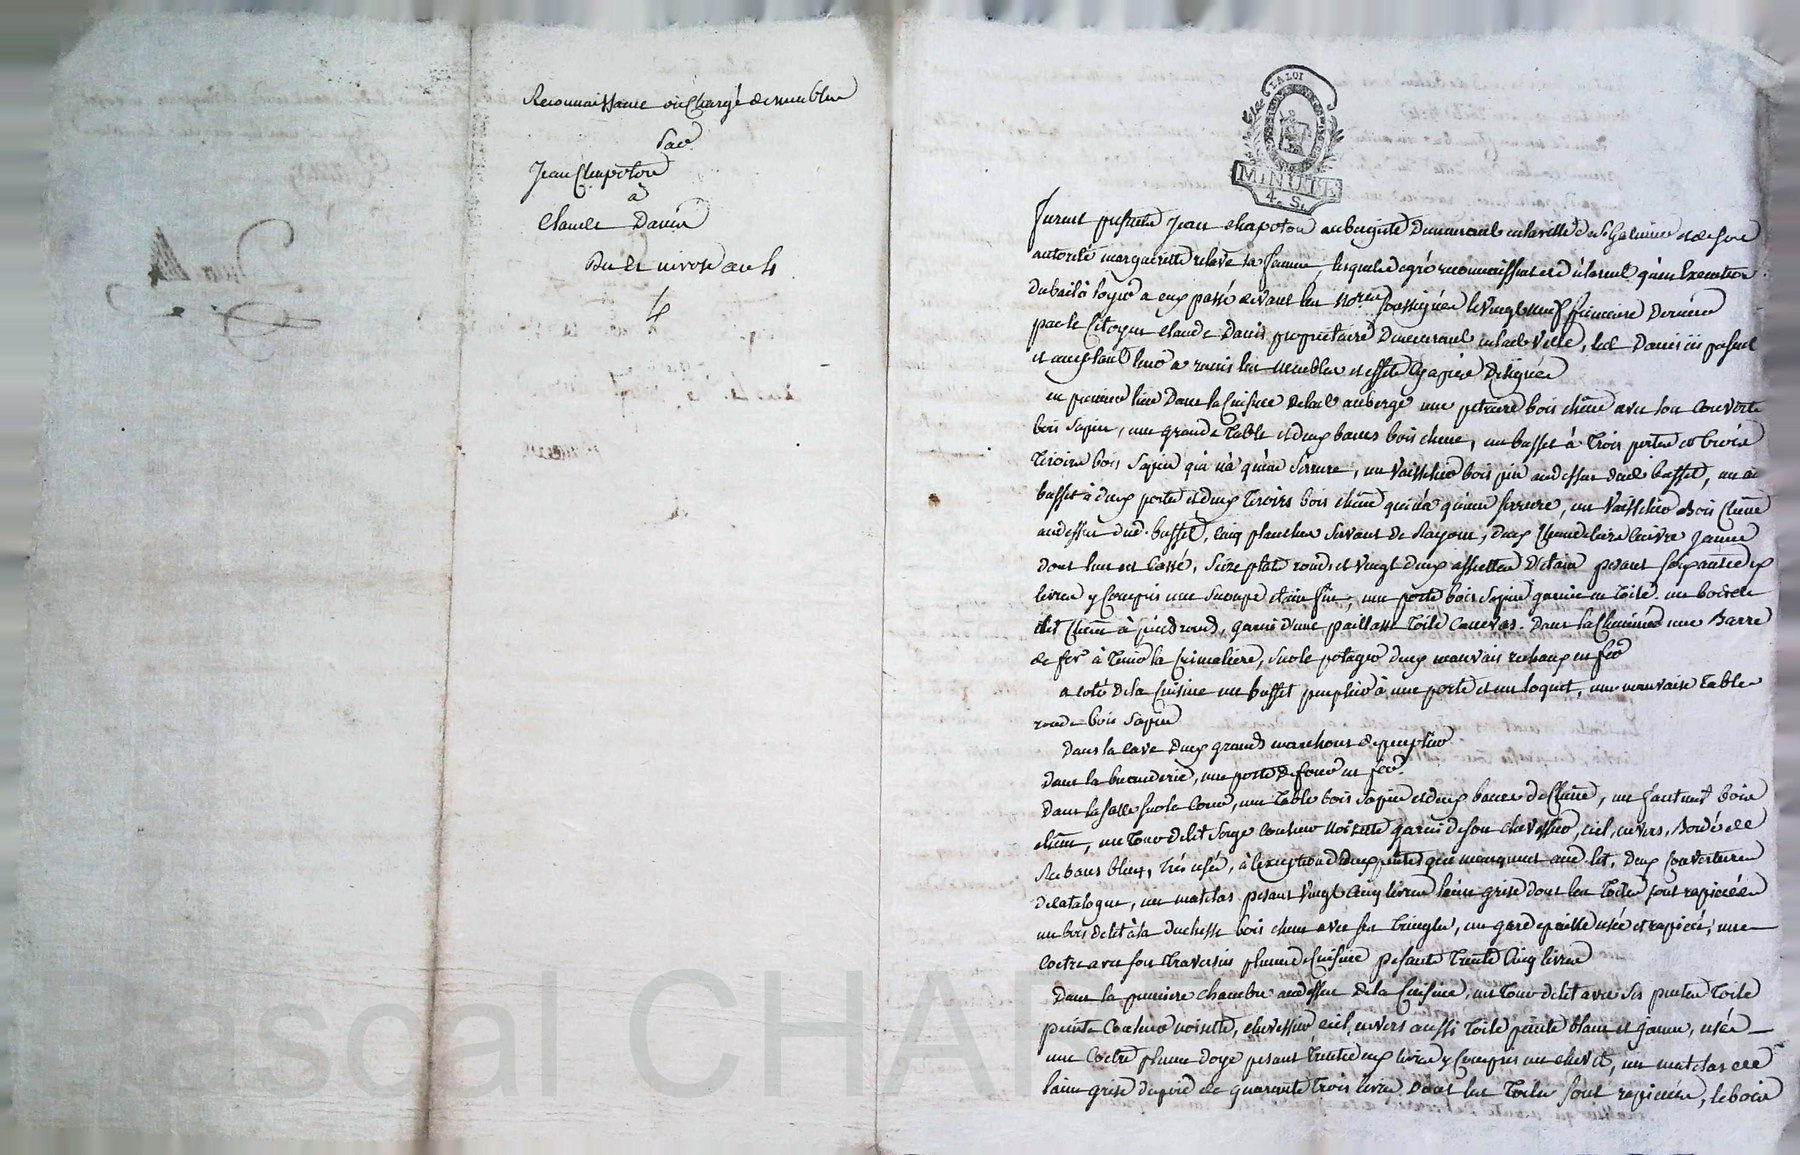 Reconnaissance ou Chargé de meubles
par
Jean Chapoton
à
Claude David
Du 21 nivose an 4
LA LOI
MINUTE
4. S.
Furent présents Jean chapoton aubergiste Demeurant en la ville de St Galmier et de son
autorité marguerite relave sa femme, lesquels de gré reconnaissent et déclarent qu'en Execution
du bail à loyer a eux passé devant les Nores soussignés le vingt neuf frimaire Dernier
par le Citoyen Claude David propriétaire Demeurant en lad. Ville, led. David ici présent
et acceptant leur a remis les meubles et effets cy après Désignés
en premier lieu Dans la Cuisine de lad. auberge une pétrière bois chêne avec son Couvert
bois sapin, une grande Table et deux bancs bois chêne, un buffet à Trois portes et trois
Tiroirs bois sapin qui n'a qu'une serrure, un Vaisselier bois pin au dessus dud. buffet, un autre
buffet à deux portes et deux Tiroirs bois chêne qui n'a qu'une serrure, un Vaisselier Bois Chêne
au dessus dud. buffet, Cinq planches servant de Rayons, Deux Chandeliers Cuivre jaune
dont l'un est Cassé, seize plats ronds et vingt deux assiettes d'étain pesant soixante deux
livres y Compris une soupe étain fin, une porte bois sapin garnie en Toile. un bois de
lit Chêne à pied rond, garni d'une paillasse Toile Canevas. Dans la Cheminée une Barre
de fer à Tenir la Crémalière, sur le potager deux mauvais rechaux en fer
a coté de la Cuisine un buffet peuplier à une porte et un loquet, une mauvaise Table
ronde bois sapin
Dans la cave deux grands marchons de peuplier
Dans la buanderie, une porte de four en fer.
Dans la salle sur la Cour, une Table bois sapin et deux bancs de Chêne, un fauteuil bois
chêne, un Tour de lit serge Couleur noisette garni de son chevessier, ciel, envers, Bordé de
Rubans bleus, Très usé, à l'exception de deux pentes qui manquent aud. lit, Deux Couvertures
de Catalogne, un matelas pesant vingt Cinq livres laine grise dont les Toiles sont rapiécées
un bois de lit à la duchesse bois chêne avec ses Tringles, un garde paille usé et rapiécé, une
Coetre avec son Traversin plume de Cuisine pesante Trente Cinq livres
Dans la première chambre au dessus de la Cuisine, un Tour de lit avec ses pentes Toile
peinte Couleur noisette, chevessier ciel, envers aussi Toile peinte blanc et jaune, usés
une Coetre plume d'oye pesant Trente deux livres y Compris un chevet, un matelas de
laine grise du poid de quarante Trois livres Dont les Toiles sont rapiécées, le bois